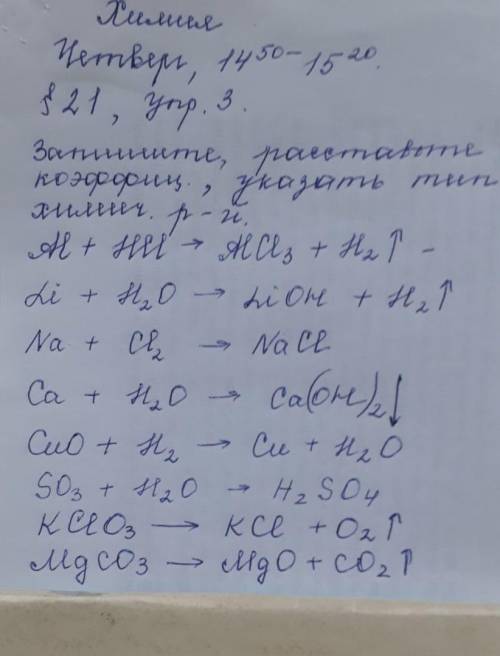 Химия
Четверг, 14⁵⁰- 15²⁰.
§ 21, упр. 3.
Запишите, расставьте
коэффиц., указать тип
химич. р-и.
Al + HCl → AlCl₃ + H₂↑ -
Li + H₂O → LiOH + H₂↑
Na + Cl₂ → NaCl
Ca + H₂O → Ca(OH)₂↓
CuO + H₂ → Cu + H₂O
SO₃ + H₂O → H₂SO₄
KClO₃ → KCl + O₂↑
MgCO₃ → MgO + CO₂↑